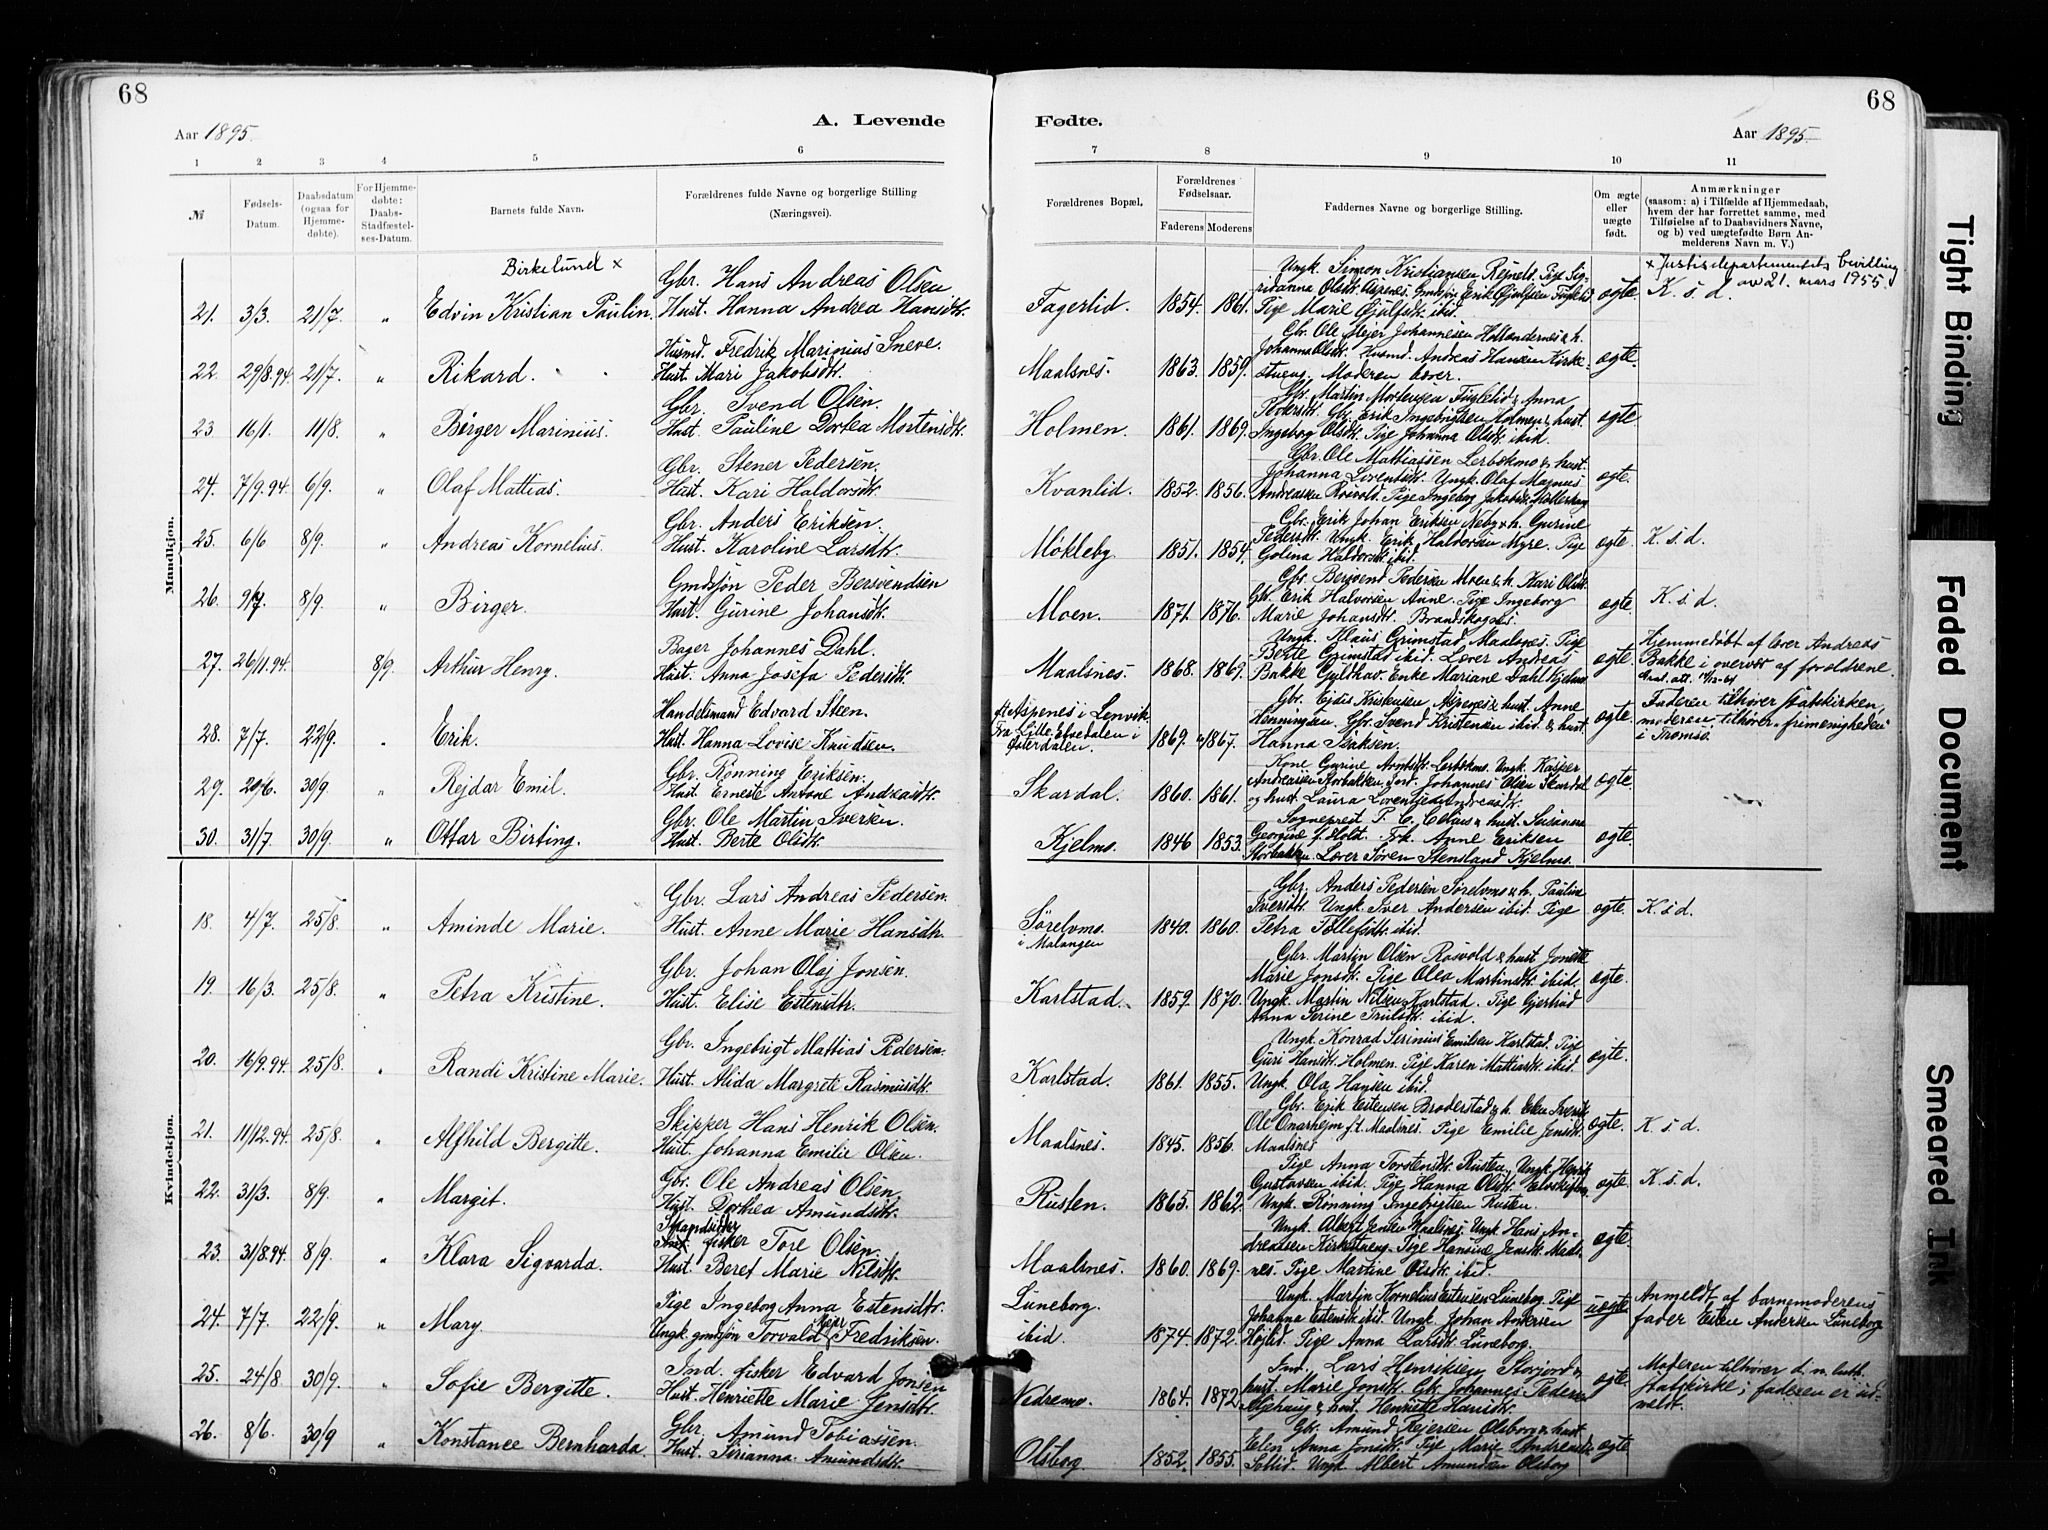 68
68
A. Levende
Fødte.
Aar 1895.
Aar 1895.
1 2 3 4 5 6
7 8 9 10 11
№
Fødsels-
Datum.
Daabsdatum
(ogsaa for
Hjemme-
døbte).
For Hjemme-
døbte:
Daabs-
Stadfæstel-
ses-Datum.
Barnets fulde Navn.
Forældrenes fulde Navne og borgerlige Stilling
(Næringsvei).
Forældrenes Bopæl.
Forældrenes
Fødselsaar.
Faderens Moderens
Faddernes Navne og borgerlige Stilling.
Om ægte
eller
uægte
født.
Anmærkninger
(saasom: a) i Tilfælde af Hjemmedaab,
hvem der har forrettet samme, med
Tilføielse af to Daabsvidners Navne,
og b) ved uægtefødte Børn An-
melderens Navn m. V.)
Mandkjøn.
Birkelund x
21. 3/3. 21/7. „ Edvin Kristian Paulin.
Gbr. Hans Andreas Olsen
Hust. Hanna Andrea Hansdtr.
Fagerlid. 1854. 1861.
Ungk. Simon Kristiansen Rejnels. Pige Sig-
Pige Marie Ojulfsdtr. ibid.
ægte
x Justisdepartementets bevilling
av 21. mars 1955.
K. s. d.
22. 29/8.94. 21/7. „ Rikard.
Husmd. Fredrik Marinius Sneve.
Hust. Mari Jakobsdtr.
Maalsnes. 1863. 1859.
Gbr. Ole Mejer Johannesen Hollændernes & h.
Johanna Olsdtr. Husmd. Andreas Hansen Kirke-
stueng. Moderen bærer.
ægte.
23 16/1. 11/8. „ Birger Marinius.
Gbr. Svend Olsen.
Hust. Pauline Dortea Mortensdtr.
Holmen. 1861. 1869.
Gbr. Martin Mortensen Fuglelid & Anna
Pedersdtr. Gbr. Erik Ingebrigtsen Holmen & hust.
Ingeborg Olsdtr. Pige Johanna Olsdtr. ibid.
ægte
24. 7/9.94. 6/9. „ Olaf Mattias.
Gbr. Stener Pedersen.
Hust. Kari Haldorsdtr.
Kvanlid. 1852. 1856.
Gbr. Ole Mattiassen Lerbekmo & hust.
Johanna Lorentsdtr. Ungk. Olaf Magnus
Andreassen Rosvold. Pige Ingeborg
ægte.
25. 6/6 8/9. „ Andreas Kornelius.
Gbr. Anders Eriksen.
Hust. Karoline Larsdtr.
Møkleby. 1851. 1854.
Gbr. Erik Johan Eriksen Neby & h. Gurine
Pedersdtr. Ungk. Erik Haldorsen Myre. Pige
Golina Haldorsdtr. ibid.
ægte. K. s. d.
26. 9/7. 8/9. „ Birger.
Gmdsjøn Peder Bersvendsen
Hust. Gurine Johansdtr.
Moen. 1871. 1876.
Gbr. Bersvend Pedersen Moen & h. Kari Olsdtr.
Gbr. Erik Halvorsen Anne. Pige Ingeborg
Marie Johansdtr. Brandskognes.
ægte. K. s. d.
27. 26/11.94. 8/9. Arthur Henry.
Bager Johannes Dahl.
Hust. Anna Josefa Pedersdtr.
Maalsnes. 1868. 1869.
Ungk. Klaus Grimstad Maalsnes. Pige
Berte Grimstad ibid. Lærer Andreas
Bakke Gyldhav. Enke Mariane Dahl Kjelmo
ægte.
Hjemmedøbt af lærer Andreas
Bakke i overvær af forældrene.
28. 7/7. 22/9. „ Erik.
Handelsmand Edvard Steen.
Hust. Hanna Lovise Knudsen.
ft. Aspenes i Lenvik.
Fra Lille Elvedalen i
Østerdalen.
1869. 1867.
Gbr. Ejdis Kristensen Aspenes & hust. Anne
Henningsen. Gbr. Svend Kristensen ibid & hust.
Hanna Isaksen.
ægte.
Faderen tilhører statskirken,
moderen tilhører frimenigheden
i Tromsø.
29. 20/6. 30/9 „ Rejdar Emil.
Gbr. Rønning Eriksen.
Hust. Erneste Antone Andreasdtr.
Skardal. 1860. 1861.
Kone Gurine Arntsdtr. Lerbekmo. Ungk. Kasper
Andreassen Storbakken. Jord. Johannes Olsen Skardal
og hust. Laura Lorentse Andreasdtr.
ægte
30. 31/7. 30/9. „ Ottar Birting.
Gbr. Ole Martin Iversen.
Hust. Berte Olsdtr.
Kjelmo. 1846 1853.
Sogneprest P. C. Celius & hust. Susanna
Georgine f. Holdt. Frk. Anne Eriksen
Storbakken. Lærer Søren Stensland Kjelmo.
ægte.
Kvindekjøn.
18. 4/7. 25/8. „ Aminde Marie.
Gbr. Lars Andreas Pedersen.
Hust. Anne Marie Hansdtr.
Sørelvmo.
i Malangen
1840. 1860.
Gbr. Anders Pedersen Sørelvmo & h. Pauline
Iversdtr. Ungk. Iver Andersen ibid. Pige
Petra Tollefsdtr. ibid.
ægte. K. s. d.
19. 16/3. 25/8. „ Petra Kristine.
Gbr. Johan Olaj Jonsen.
Hust. Elise Estensdtr.
Karlstad. 1859. 1870.
Gbr. Martin Olsen Rosvold & hust. Jonette
Marie Jonsdtr. Pige Olea Martinsdtr. ibid.
Ungk. Martin Nilsen Karlstad. Pige Gjertrud
Anna Serine Trulsdtr. ibid.
ægte.
20. 16/9.94. 25/8. „ Randi Kristine Marie.
Gbr. Ingebrigt Mattias Pedersen.
Hust. Alida Margrete Rasmusdtr.
Karlstad. 1861. 1855.
Ungk. Konrad Serinius Emilsen Karlstad. Pige
Guri Hansdtr. Holmen. Pige Karen Mattiasdtr. ibid.
Ungk. Ola Hansen ibid.
ægte.
21. 11/12.94. 25/8. „ Alfhild Bergitte.
Skipper Hans Henrik Olsen.
Hust. Johanna Emilie Olsen.
Maalsnes. 1845. 1856.
Gbr. Erik Estensen Broderstad & h. Elen
Ole Onarheim f.t. Maalsnes. Pige Emilie Jensdtr.
Maalsnes
ægte. K. s. d.
22. 31/3. 8/9. „ Margit.
Gbr. Ole Andreas Olsen.
Hust. Dorthea Amundsdtr.
Rusten. 1865. 1862.
Pige Anna Torstensdtr. Rusten, Ungk. Henrik
Gustavsen ibid. Pige Hanna Olsdtr.
Ungk. Rønning Ingebrigtsen Rusten.
ægte. K. s. d.
23. 31/8.94. 8/9. „ Klara Sigvarda.
Strandsidder
fisker Tore Olsen.
Hust. Beret Marie Nilsdtr.
Maalsnes. 1860. 1869.
Ungk. Albert Jensen Maalsnes. Ungk. Hans An-
dreassen Kirkestueng. Pige Hansine Jensdtr. Maals-
nes. Pige Martine Olsdtr. ibid.
ægte.
24. 7/7. 22/9. „ Mary.
Pige Ingeborg Anna Estensdtr.
Ungk. gmdsøn Torvald Mejer Fredriksen.
Luneborg.
ibid.
1874. 1872.
Ungk. Martin Kornelius Estensen Luneborg. Pige
Johanna Estensdtr. ibid. Ungk. Johan Andersen
Højlid. Pige Anna Larsdtr. Luneborg.
uægte
Anmeldt af barnemoderens
fader Esten Andersen Luneborg
25. 24/8. 30/9. „ Sofie Bergitte.
Ind. fisker Edvard Jonsen
Hust. Henriette Marie Jensdtr.
Nedremo. 1864. 1872.
Inn. Lars Henriksen Storjord &
hust. Marie Jonsdtr. Gbr. Johannes Pedersen
& hust. Henriette Hansdtr.
ægte.
Moderen tilhører d. n. luth.
statskirke; faderen er ud-
meldt.
26. 8/6. 30/9 „ Konstance Bernharda.
Gbr. Amund Tobiassen.
Hust. Sirianna Amundsdtr.
Olsborg. 1852. 1855.
Gbr. Amund Rejersen Olsborg & hust.
Elen Anna Jonsdtr. Pige Marie Andreasdtr.
Solli. Ungk. Albert Amundsen Olsborg
ægte
Tight Binding
Faded Document
Smeared Ink